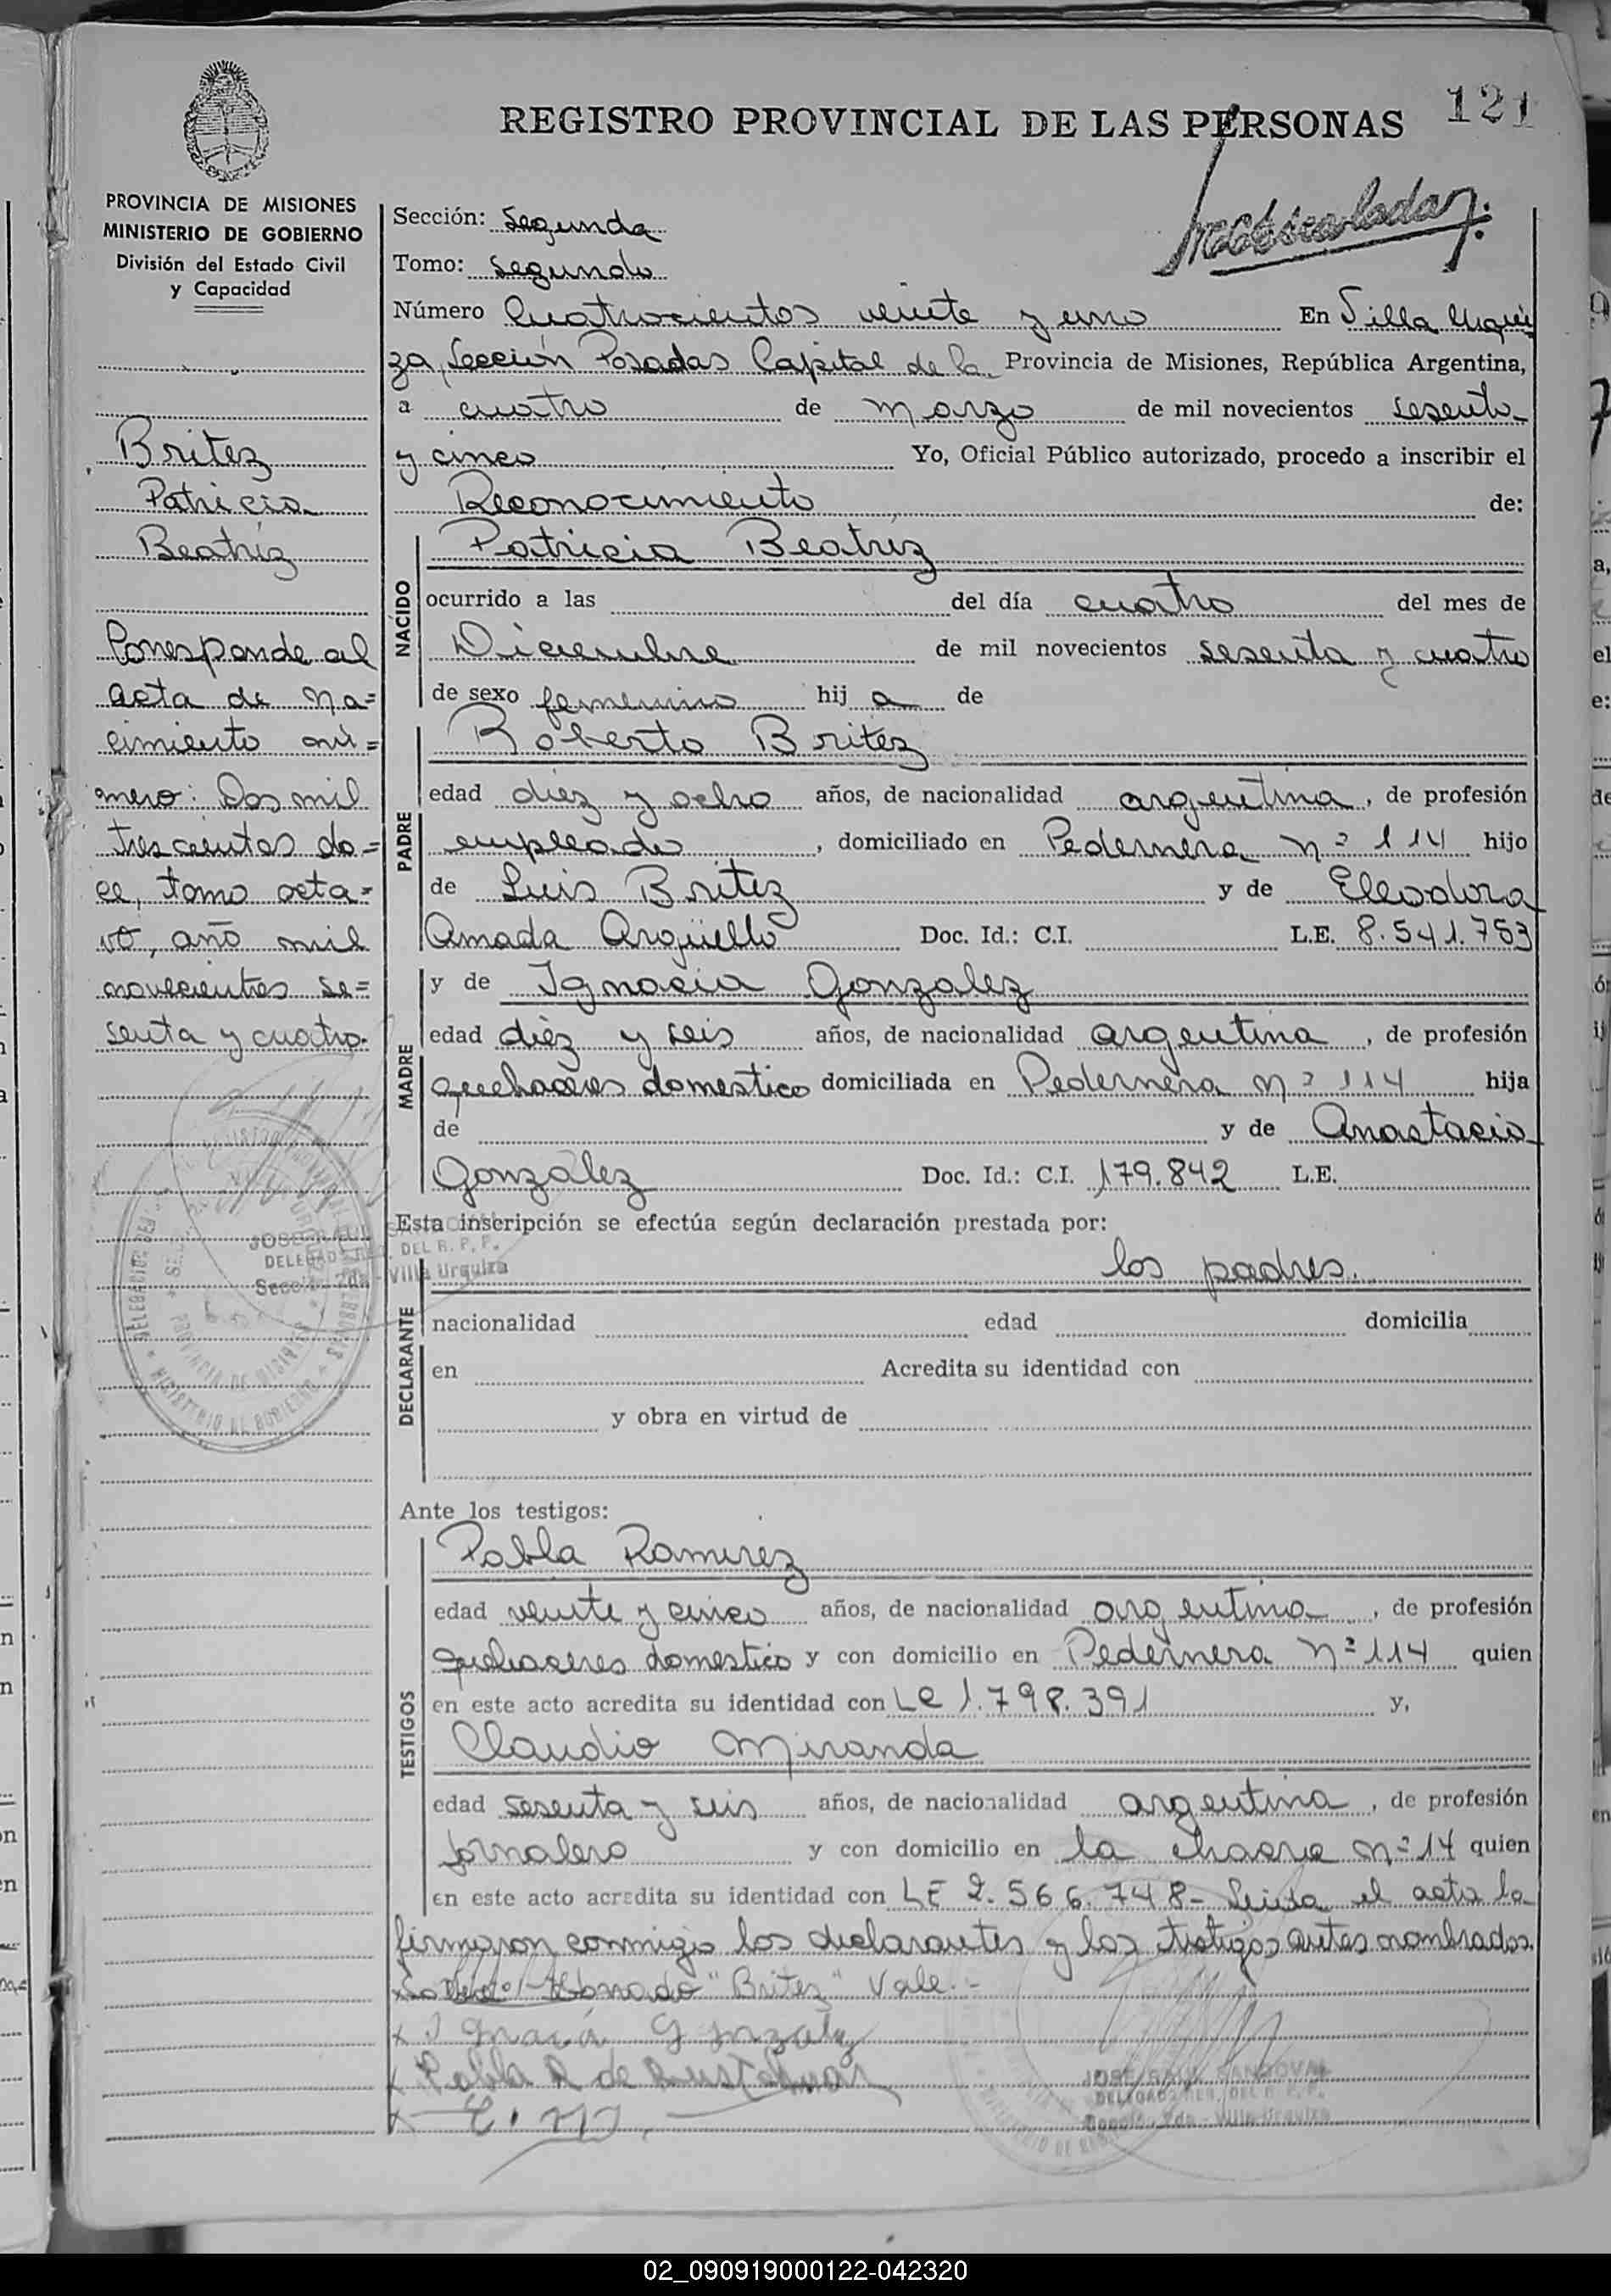 REGISTRO PROVINCIAL DE LAS PERSONAS
121
PROVINCIA DE MISIONES
MINISTERIO DE GOBIERNO
División del Estado Civil
y Capacidad
Britez
Patricia
Beatriz
Corresponde al
acta de na=
cimiento nú=
mero: Dos mil
trescientos do=
ce, tomo octa=
vo, año mil
novecientos se=
senta y cuatro.
Sección: Segunda
Tomo: Segundo
Número Cuatrocientos veinte y uno En Villa Urqui
za, Sección Posadas Capital de la Provincia de Misiones, República Argentina,
a cuatro de marzo de mil novecientos sesenta
y cinco Yo, Oficial Público autorizado, procedo a inscribir el
Reconocimiento de:
NACIDO
Patricia Beatriz
ocurrido a las del día cuatro del mes de
Diciembre de mil novecientos sesenta y cuatro
de sexo femenino hij a de
PADRE
Roberto Britez
edad diez y ocho años, de nacionalidad argentina, de profesión
empleado, domiciliado en Pedernera nº 114 hijo
de Luis Britez y de Eleodora
Amada Argüello Doc. Id.: C.I. L.E. 8.541.753
MADRE
y de Ignacia Gonzalez
edad diéz y seis años, de nacionalidad argentina, de profesión
quehaceres domestico domiciliada en Pedernera nº 114 hija
de y de Anastacia
González Doc. Id.: C.I. 179.842 L.E.
Esta inscripción se efectúa según declaración prestada por:
DECLARANTE
los padres.
nacionalidad edad domicilia
en Acredita su identidad con
y obra en virtud de
Ante los testigos:
TESTIGOS
Pabla Ramirez
edad veinte y cinco años, de nacionalidad argentina, de profesión
quehaceres domestico y con domicilio en Pedernera nº 114 quien
en este acto acredita su identidad con LC 1.798.391 y,
Claudio Miranda
edad sesenta y seis años, de nacionalidad argentina, de profesión
jornalero y con domicilio en la chacra nº 14 quien
en este acto acredita su identidad con LE 2.566.748- Leida el acta la
firmaron conmigo los declarantes y los testigos antes nombrados.
"Britez" Vale.-
JOSE RAUL SANDOVAL
DELEGADO DEL R. P. P.
Sección 2da - Villa Urquiza
02_090919000122-042320